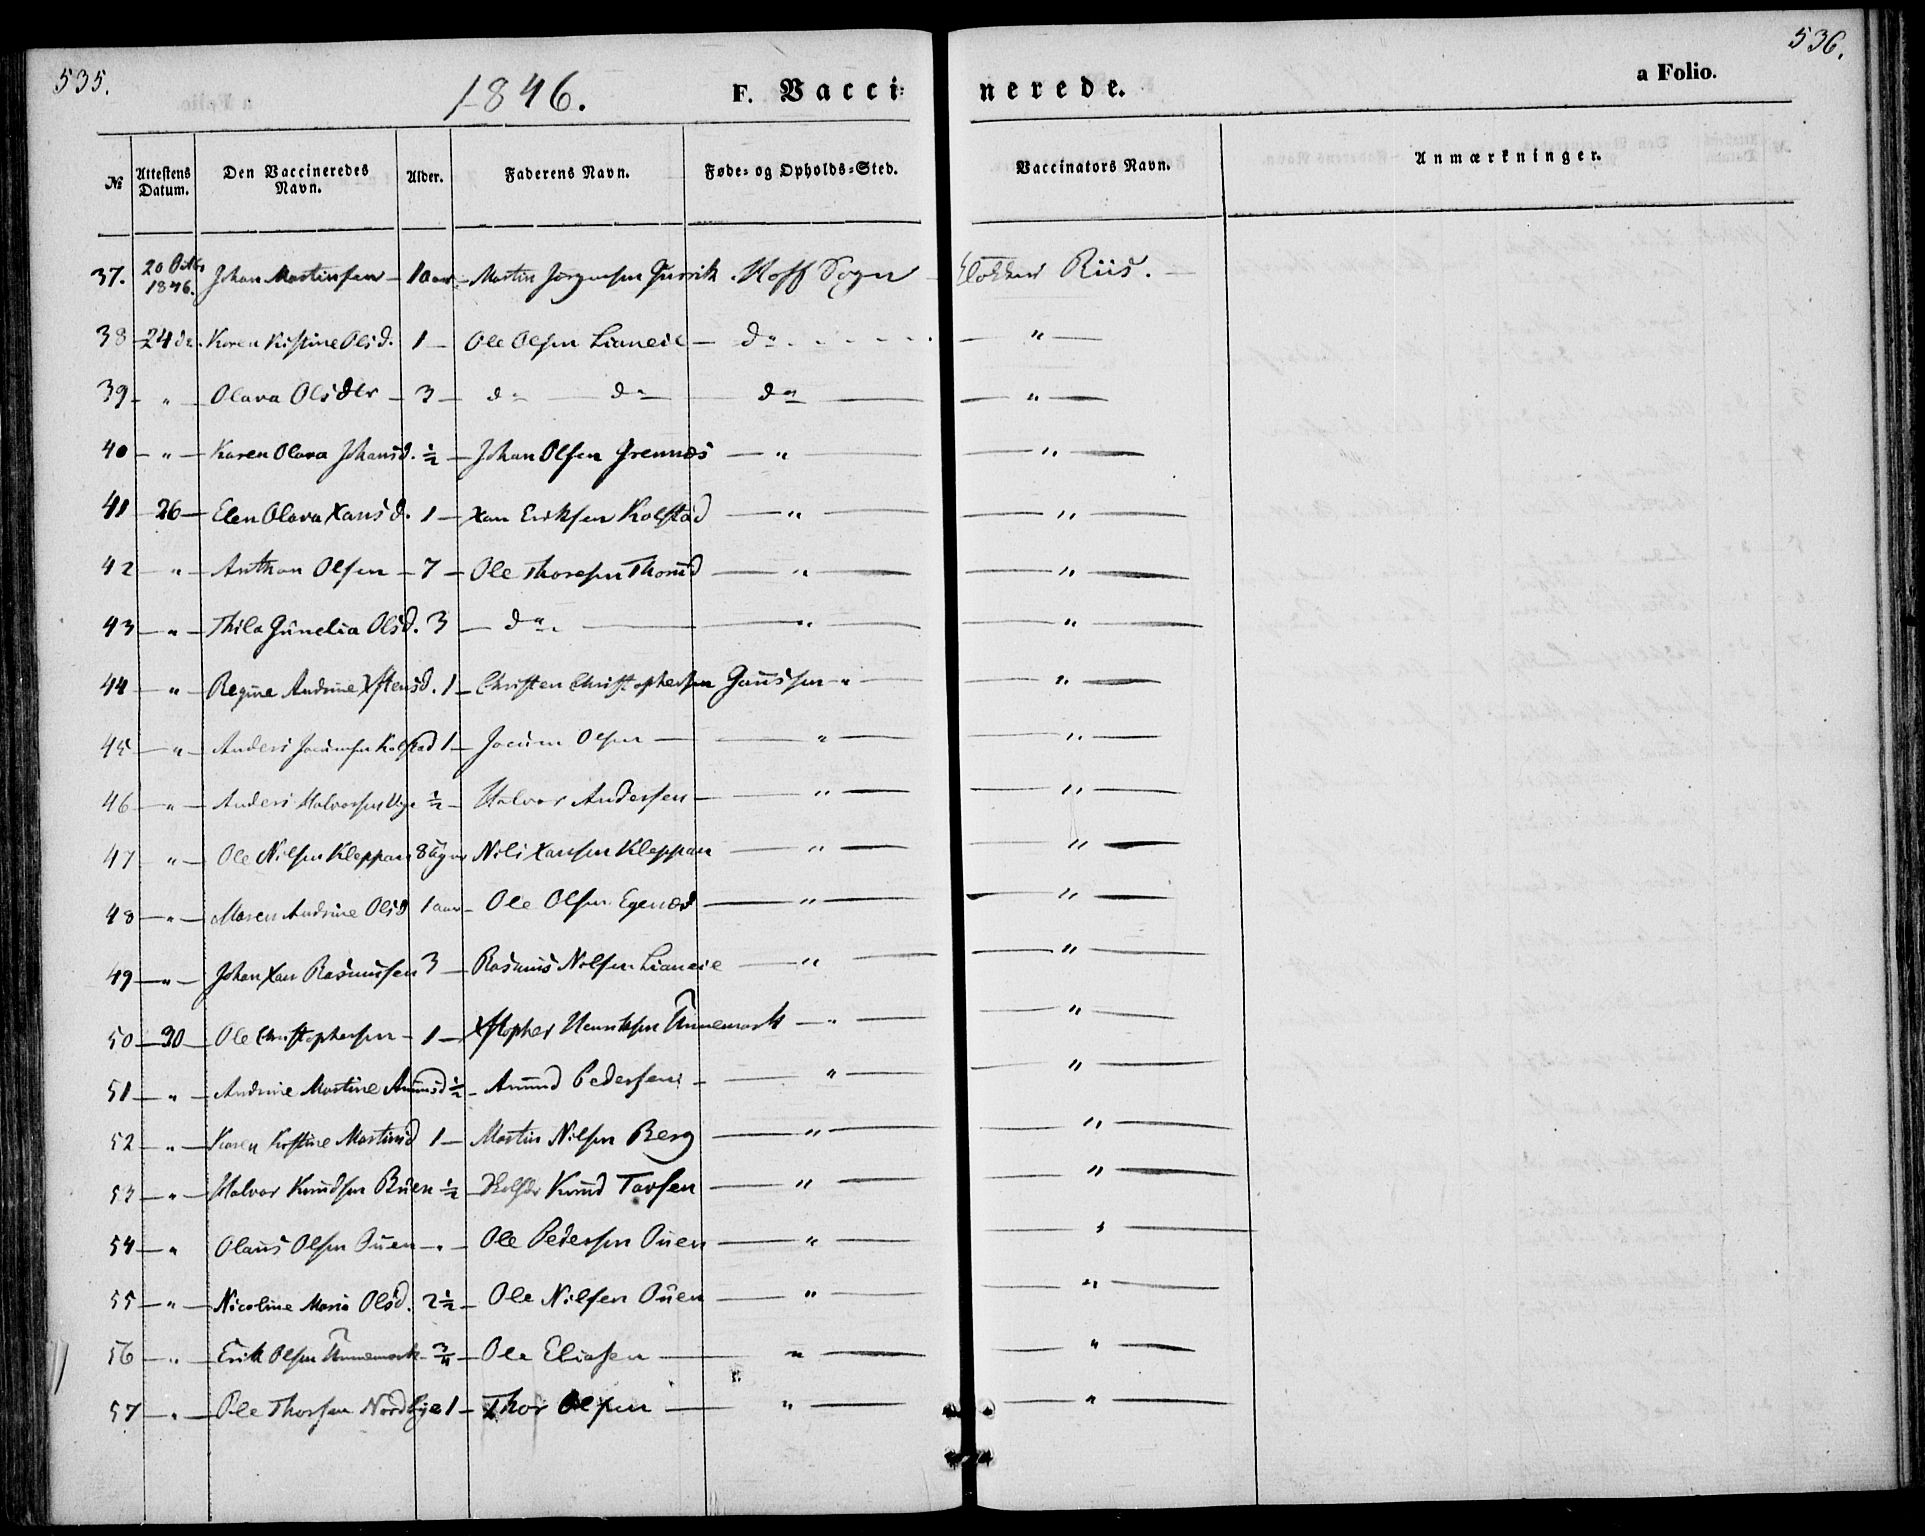 535.
1846.
F. Vacci-
nerede.
a Folio.
536.
№ Attestens Datum. Den Vaccineredes Navn. Alder. Faderens Navn. Føde- og Opholds-Sted. Vaccinators Navn. Anmærkninger.
37. 20 Octbr 1846. Johan Martinsen – 1 aar – Martin Jørgensen Hoff Sogn – Klokker Riis. –
38 – 24 do. Karen Kistine Olsd. 1 – Ole Olsen Lianeie – do. – " –
39 – " – Olava Olsdtr – 3 – do – do – do – " –
40 – " – Karen Olava Johansd. ½ – Johan Olsen Grennes – " – – " –
41 – 26 – Elen Olava Xansd. 1 – Xan Eriksen Kolstad – " – – " –
42 – " – Anthon Olsen – 7 – Ole Thoresen Thorud – " – – " –
43 – " – Thila Gunelia Olsd. 3 – do. – " – – " –
44 – " – Regine Andrine Xstensd. 1 – Christen Christophersen – " – – " –
45 – " – Anders Jocumsen Kolstad 1 – Jocum Olsen – " – – " –
46 – " – Anders Halvorsen ½ – Halvor Andersen – " – – " –
47 – " – Ole Nilsen Kleppan 8 Uger Nils Xansen Kleppan – " – – " –
48 – " – Maren Andrine Olsd 1 aar – Ole Olsen – " – – " –
49 – " – Johan Xan Rasmussen 3 – Rasmus Nilsen Lianeie – " – – " –
50 – 30 – Ole Christophersen – 1 – Xstopher Henriksen Unnemark – " – – " –
51 – " – Andrine Martine Amunsd ½ – Amund Pedersen – – " – – " –
52 – " – Karen Kistine Martinsd 1 – Martin Nilsen Berg – " – – " –
53 – " – Halvor Knudsen Buen ½ – Knud Tovsen – " – – " –
54 – " Olaus Olsen Buen – " – Ole Pedersen Buen – " – – " –
55 – " – Nicoline Maria Olsd. 2½ – Ole Nilsen Buen – " – – " –
56 – " – Erik Olsen Unnemark – ¾ – Ole Eliasen – " – – " –
57 – " – Ole Thorsen Nordbye 1 – Thor Olsen – " – – " –